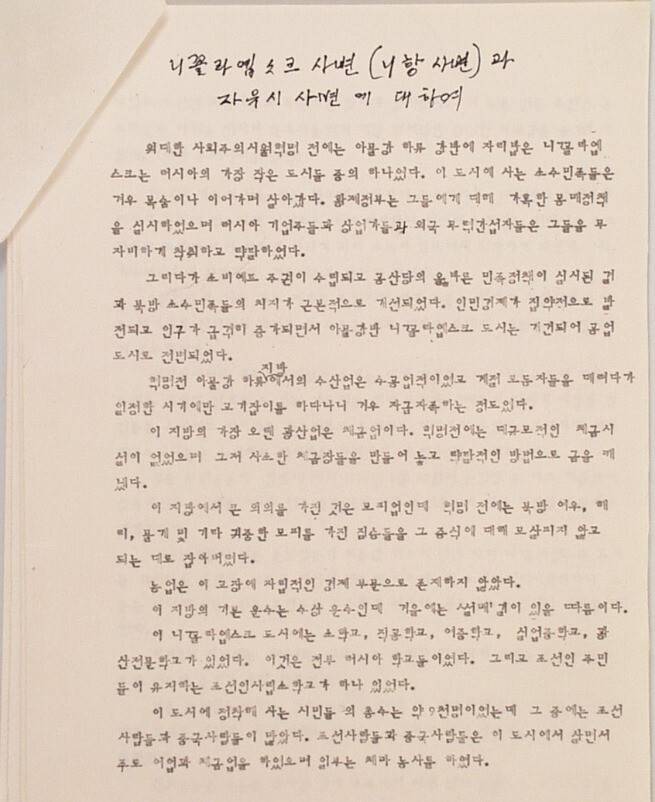 니꼴라엡쓰크 사변 (니항 사변) 과
자유시 사변에 대하여
위대한 사회주의시월혁명 전에는 아물강 하류 강반에 자리잡은 니꼴라엡
스크는 러시아의 가장 작은 도시들 중의 하나였다. 이 도시에 사는 소수민족들은
겨우 목숨이나 이어가며 살아갔다. 황제정부는 그들에게 대해 가혹한 정책
을 실시하였으며 러시아 기업주들과 상업가들과 외국 무력간섭자들은 그들을 무
자비하게 착취하고 략탈하였다.
그러다가 소비에트 주권이 수립되고 공산당의 올바른 민족정책이 실시된 결
과 북방 소수민족들의 처지가 근본적으로 개선되였다. 인민경제가 집약적으로 발
전되고 인구가 급격히 증가되면서 아물강반 니꼴라엡스크 도시는 개건되여 공업
도시로 전변되였다.
지방
혁명전 아물강 하류에서의 수산업은 수공업적이였고 계절 로동자들을 데려다가
일정한 시기에만 고기잡이를 하다나니 겨우 자급자족하는 정도였다.
이 지방의 가장 오랜 광산업은 채금업이다. 혁명전에는 대규모적인 채금시
설이 없었으며 그저 사소한 채금장들을 만들어 놓고 략탈적인 방법으로 금을 캐
냈다.
이 지방에서 큰 의의를 가진 것은 모피업인데 혁명 전에는 북방 여우, 해
리, 물개 및 기타 귀중한 모피를 가진 짐승들을 그 증식에 대해 보살피지 않고
되는 대로 잡아버렸다.
농업은 이 고장에 자립적인 경제 부문으로 존재하지 않았다.
이 지방의 기본 운수는 수상 운수인데 겨울에는 썰매길이 있을 따름이다.
이 니꼴라엡스크 도시에는 소학교, 직공학교, 여중학교, 실업중학교, 광
산전문학교가 있었다. 이것은 전부 러시아 학교들이였다. 그리고 조선인 주민
들이 유지하는 조선인사립소학교가 하나 있었다.
이 도시에 정착해 사는 시민들 의 총수는 약 9천명이였는데 그 중에는 조선
사람들과 중국사람들이 많았다. 조선사람들과 중국사람들은 이 도시에서 살면서
주로 어업과 채금업을 하였으며 일부는 채마 농사를 하였다.